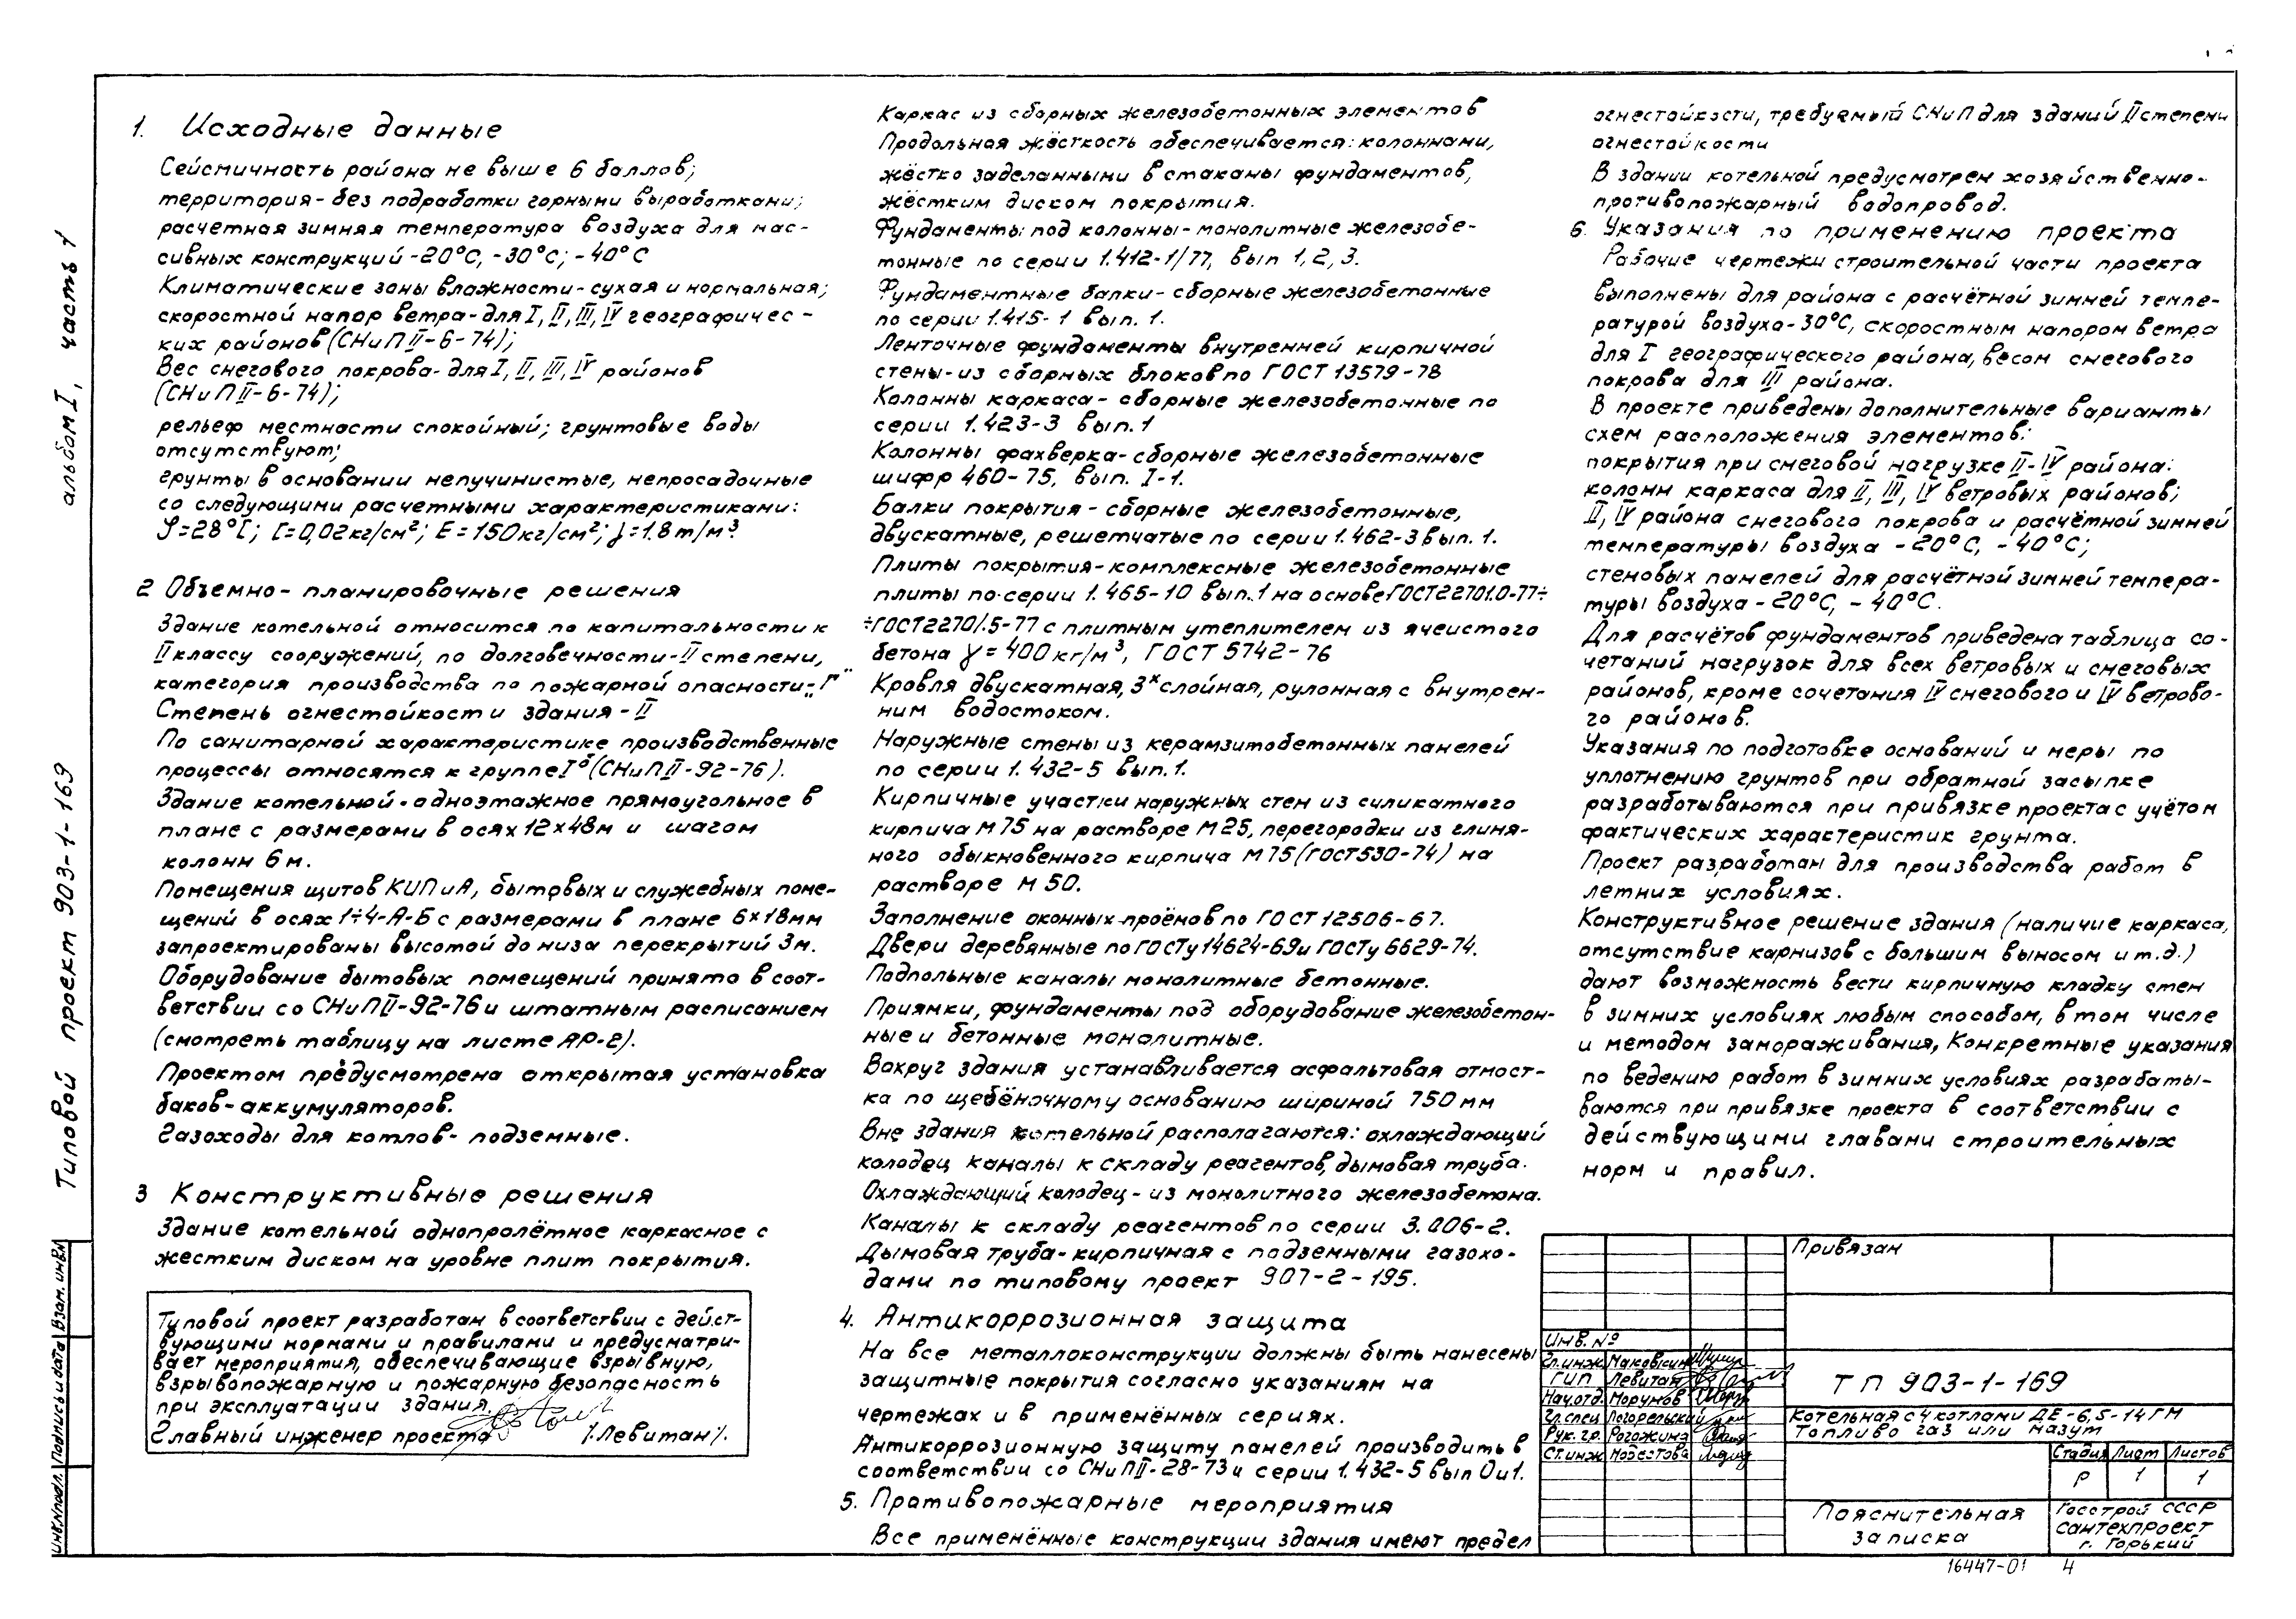 1. Исходные данные
Сейсмичность района не выше 6 баллов;
территория - без подработки горными выработками;
расчетная зимняя температура воздуха для мас-
сивных конструкций -20°С, -30°С; -40°С
Климатические зоны влажности - сухая и нормальная;
скоростной напор ветра - для I, II, III, IV географичес-
ких районов (СНиП II-6-74);
Вес снегового покрова - для I, II, III, IV районов
(СНиП II-6-74);
рельеф местности спокойный; грунтовые воды
отсутствуют;
грунты в основании непучинистые, непросадочные
со следующими расчетными характеристиками:
E = 150 кг/см²; γ = 1.8 т/м³.
2 Объемно - планировочные решения
Здание котельной относится по капитальности к
II классу сооружений, по долговечности - II степени,
категория производства по пожарной опасности - „Г"
Степень огнестойкости здания - II
По санитарной характеристике производственные
процессы относятся к группе Iб (СНиП II-92-76).
Здание котельной - одноэтажное прямоугольное в
плане с размерами в осях 12×48м и шагом
колонн 6 м.
Помещения щитов КИПиА, бытовых и служебных поме-
щений в осях 1÷4-А-Б с размерами в плане 6×18мм
запроектированы высотой до низа перекрытий 3м.
Оборудование бытовых помещений принято в соот-
ветствии со СНиП II-92-76 и штатным расписанием
(смотреть таблицу на листе АР-2).
Проектом предусмотрена открытая установка
баков-аккумуляторов.
Газоходы для котлов - подземные.
3 Конструктивные решения
Здание котельной однопролётное каркасное с
жестким диском на уровне плит покрытия.
Типовой проект разработан в соответствии с дейст-
вующими нормами и правилами и предусматри-
вает мероприятия, обеспечивающие взрывную,
взрывопожарную и пожарную безопасность
при эксплуатации здания.
Главный инженер проекта /Левитан/.
Каркас из сборных железобетонных элементов
Продольная жёсткость обеспечивается: колоннами,
жёстко заделанными в стаканы фундаментов,
жёстким диском покрытия.
Фундаменты под колонны - монолитные железобе-
тонные по серии 1.412-1/77, вып 1, 2, 3.
Фундаментные балки - сборные железобетонные
по серии 1.415-1 вып. 1.
Ленточные фундаменты внутренней кирпичной
стены - из сборных блоков по ГОСТ 13579-78
Колонны каркаса - сборные железобетонные по
серии 1.423-3 вып. 1
Колонны фахверка - сборные железобетонные
шифр 460-75, вып. I-1.
Балки покрытия - сборные железобетонные,
двускатные, решетчатые по серии 1.462-3 вып. 1.
Плиты покрытия - комплексные железобетонные
плиты по серии 1.465-10 вып. 1 на основе ГОСТ 22701.0-77÷
÷ГОСТ 22701.5-77 с плитным утеплителем из ячеистого
бетона γ = 400 кг/м³, ГОСТ 5742-76
Кровля двускатная, 3х слойная, рулонная с внутрен-
ним водостоком.
Наружные стены из керамзитобетонных панелей
по серии 1.432-5 вып. 1.
Кирпичные участки наружных стен из силикатного
кирпича М75 на растворе М25, перегородки из глиня-
ного обыкновенного кирпича М75 (ГОСТ 530-74) на
растворе М 50.
Заполнение оконных проёмов по ГОСТ 12506-67.
Двери деревянные по ГОСТу 14624-69 и ГОСТу 6629-74.
Подпольные каналы монолитные бетонные.
Приямки, фундаменты под оборудование железобетон-
ные и бетонные монолитные.
Вокруг здания устанавливается асфальтовая отмост-
ка по щебёночному основанию шириной 750 мм
Вне здания котельной располагаются: охлаждающий
колодец каналы к складу реагентов, дымовая труба.
Охлаждающий колодец - из монолитного железобетона.
Каналы к складу реагентов по серии 3.006-2.
Дымовая труба - кирпичная с подземными газохо-
дами по типовому проект 907-2-195.
4. Антикоррозионная защита
На все металлоконструкции должны быть нанесены
защитные покрытия согласно указаниям на
чертежах и в применённых сериях.
Антикоррозионную защиту панелей производить в
соответствии со СНиП II-28-73 и серии 1.432-5 вып 0 и 1.
5. Противопожарные мероприятия
Все применённые конструкции здания имеют предел
огнестойкости, требуемый СНиП для зданий II степени
огнестойкости
В здании котельной предусмотрен хозяйственно-
противопожарный водопровод.
6. Указания по применению проекта
Рабочие чертежи строительной части проекта
выполнены для района с расчётной зимней темпе-
ратурой воздуха -30°С, скоростным напором ветра
для I географического района, весом снегового
покрова для III района.
В проекте приведены дополнительные варианты
схем расположения элементов:
покрытия при снеговой нагрузке II-IV района:
колонн каркаса для II, III, IV ветровых районов;
II, IV района снегового покрова и расчётной зимней
температуры воздуха -20°С, -40°С;
стеновых панелей для расчётной зимней темпера-
туры воздуха -20°С, -40°С.
Для расчётов фундаментов приведена таблица со-
четаний нагрузок для всех ветровых и снеговых
районов, кроме сочетания IV снегового и IV ветрово-
го районов.
Указания по подготовке оснований и меры по
уплотнению грунтов при обратной засыпке
разрабатываются при привязке проекта с учётом
фактических характеристик грунта.
Проект разработан для производства работ в
летних условиях.
Конструктивное решение здания (наличие каркаса,
отсутствие карнизов с большим выносом и т.д.)
дают возможность вести кирпичную кладку стен
в зимних условиях любым способом, в том числе
и методом замораживания, Конкретные указания
по ведению работ в зимних условиях разрабаты-
ваются при привязке проекта в соответствии с
действующими главами строительных
норм и правил.
Привязан
Инв. №
Гл.инж
ГИП Левитан
Нач.отд. Морунов
Гл.спец Погорельский
Рук.гр. Рогожина
Ст.инж Модестова
ТП 903-1-169
Котельная с 4 котлами ДЕ-6,5-14ГМ
Топливо газ или мазут
Стадия Лист Листов
Р 1 1
Пояснительная
записка
Госстрой СССР
Сантехпроект
г. Горький
16447-01 4
Типовой проект 903-1-169 альбом I, часть 1
Инв.№подл. Подпись и дата Взам. инв.№